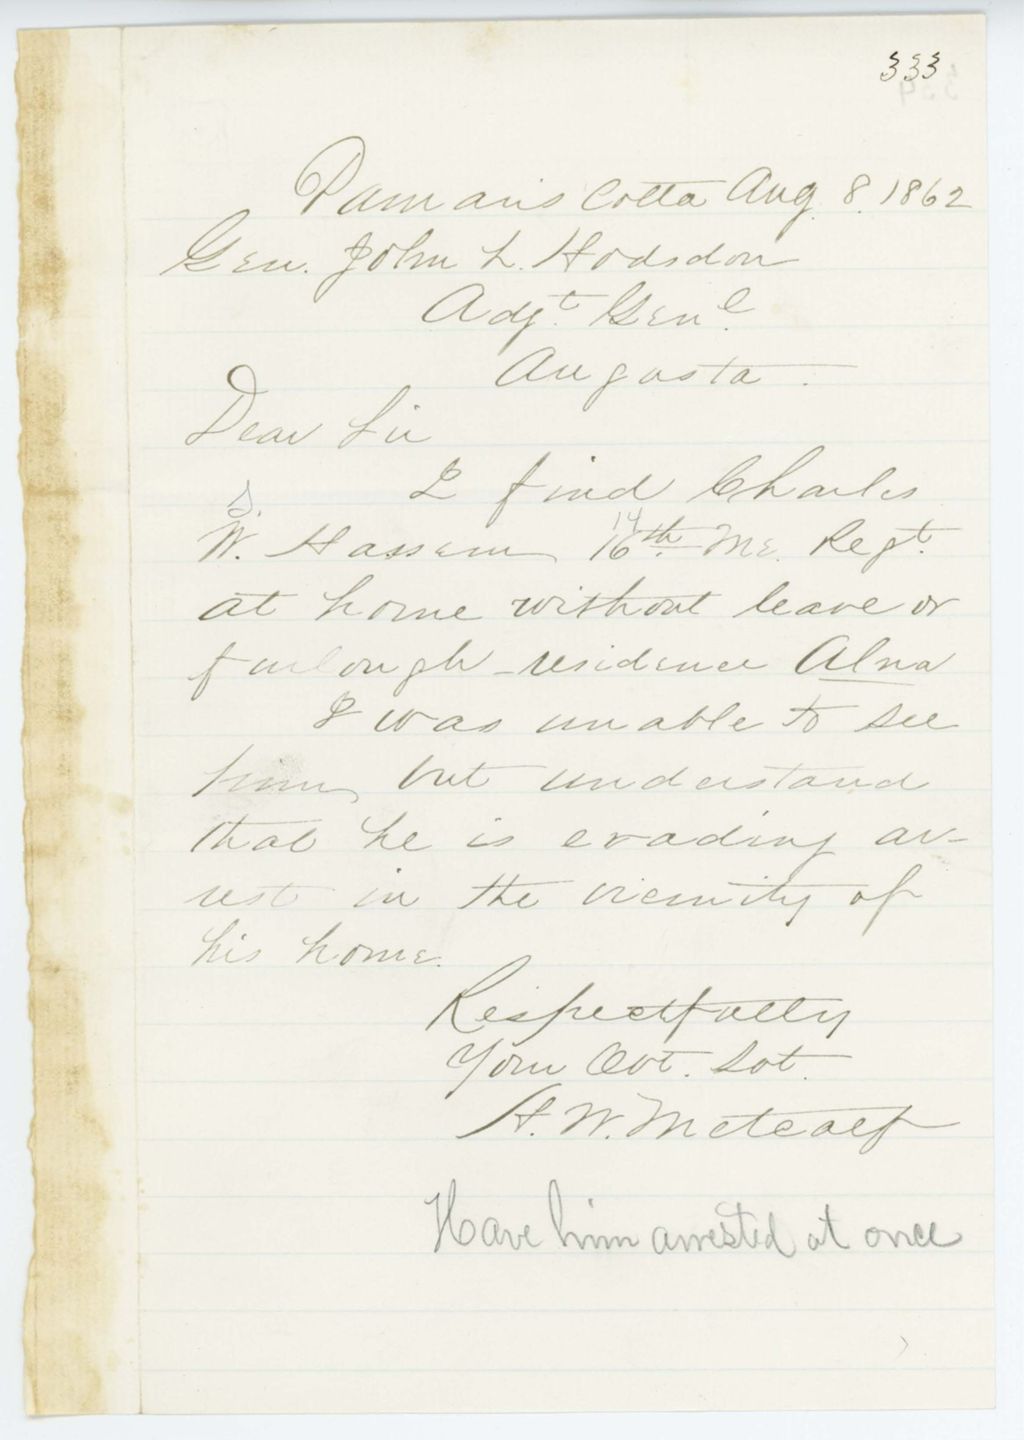 333
Damaris Cotta Aug. 8. 1862
Gen. John L. Hodsdon
Adjt. Genl.
Augusta.
Dear Sir
I find Charles
S.
W. Hassem 14 16th. Me. Regt.
at home without leave or
furlough - residence Alna
I was unable to see
him, but understand
that he is evading ar-
rest in the vicinity of
his home.
Respectfully
Your Obt. Svt.
H. W. Metcalf
Have him arrested at once